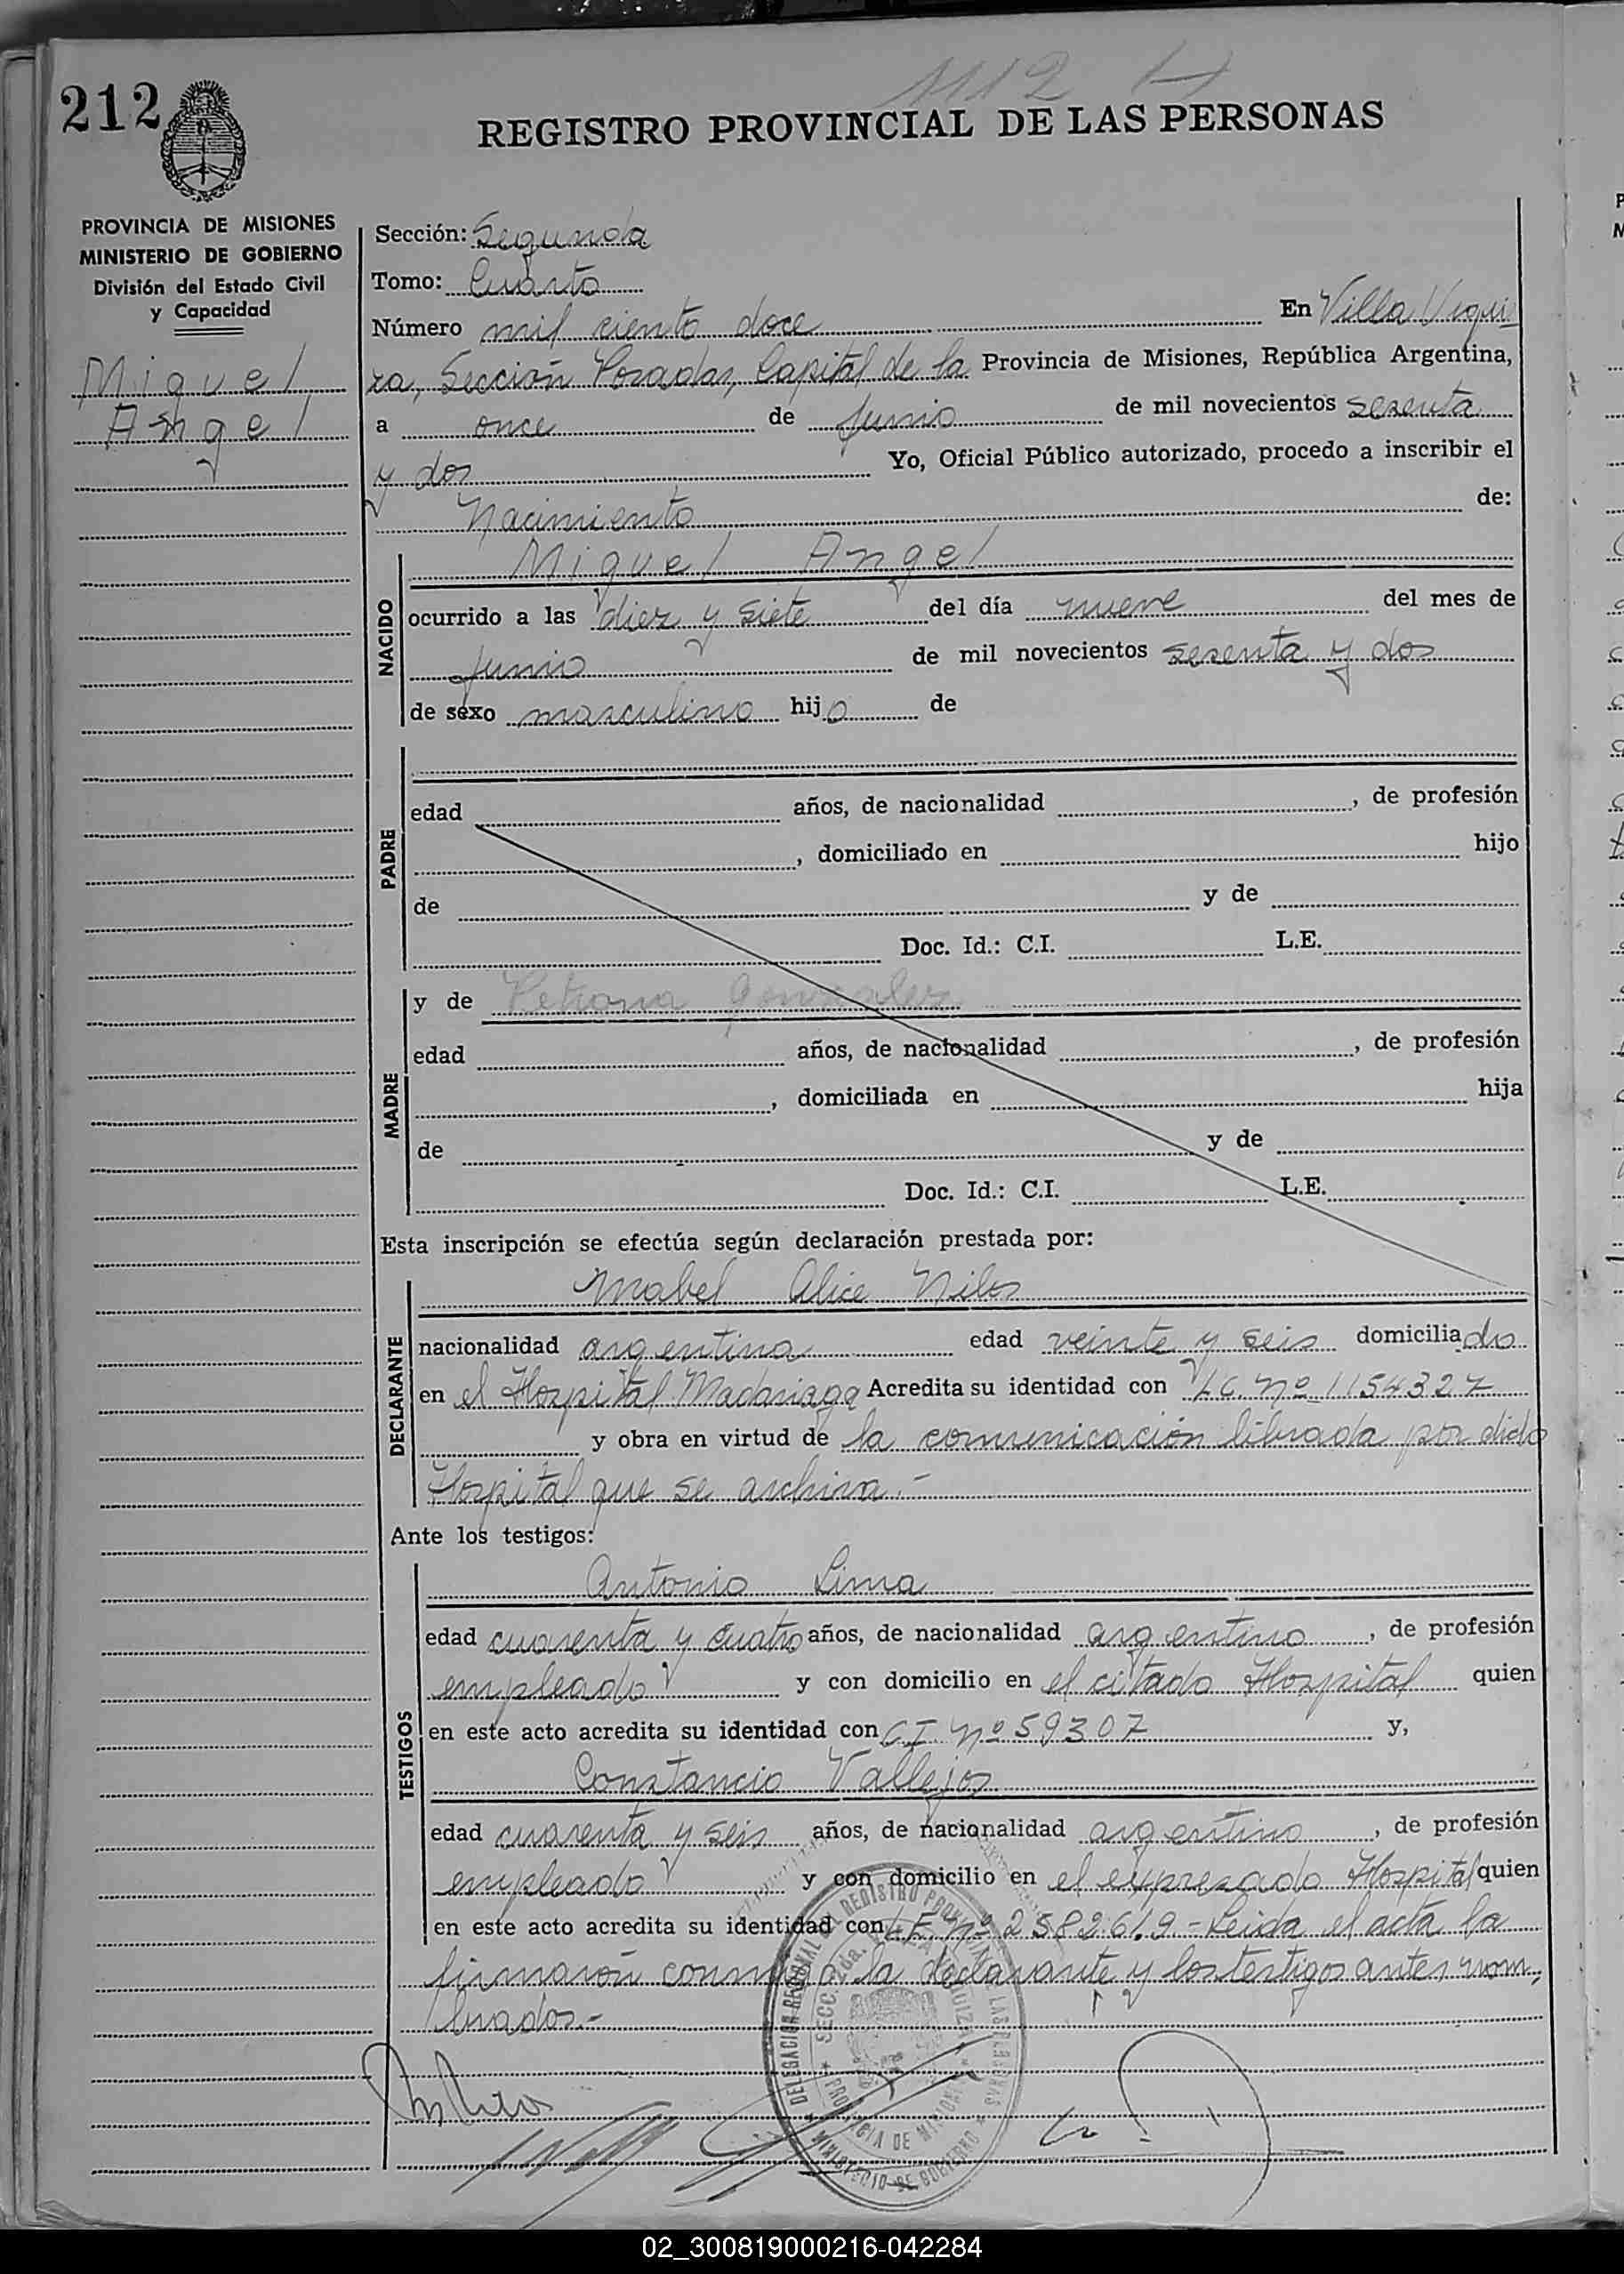 1112 H
212
REGISTRO PROVINCIAL DE LAS PERSONAS
PROVINCIA DE MISIONES
MINISTERIO DE GOBIERNO
División del Estado Civil
y Capacidad
Miguel
Angel
Sección: Segunda
Tomo: Cuarto
Número mil ciento doce En Villa Urqui
za, Sección Posadas, Capital de la Provincia de Misiones, República Argentina,
a once de Junio de mil novecientos sesenta
y dos Yo, Oficial Público autorizado, procedo a inscribir el
Nacimiento de:
NACIDO
Miguel Angel
ocurrido a las diez y siete del día nueve del mes de
Junio de mil novecientos sesenta y dos
de sexo masculino hijo de
PADRE
edad años, de nacionalidad , de profesión
, domiciliado en hijo
de y de
Doc. Id.: C.I. L.E.
MADRE
y de Petrona Gonzalez
edad años, de nacionalidad , de profesión
, domiciliada en hija
de y de
Doc. Id.: C.I. L.E.
Esta inscripción se efectúa según declaración prestada por:
DECLARANTE
Mabel Alice Niles
nacionalidad argentina edad veinte y seis domiciliado
en el Hospital Madariaga Acredita su identidad con L.C. Nº 1154327
y obra en virtud de la comunicación librada por dicho
Hospital que se archiva.-
Ante los testigos:
TESTIGOS
Antonio Lima
edad cuarenta y cuatro años, de nacionalidad argentino, de profesión
empleado y con domicilio en el citado Hospital quien
en este acto acredita su identidad con C.I. Nº 59307 y,
Constancio Vallejos
edad cuarenta y seis años, de nacionalidad argentino, de profesión
empleado y con domicilio en el expresado Hospital quien
en este acto acredita su identidad con L.E. Nº 2582619.- Leida el acta la
firmaron conmigo la declarante y los testigos antes nom-
brados.-
DELEGACION REGIONAL DEL REGISTRO PROVINCIAL DE LAS PERSONAS
SECC. 2da. VILLA URQUIZA
PROVINCIA DE MISIONES
MINISTERIO DE GOBIERNO
02_300819000216-042284